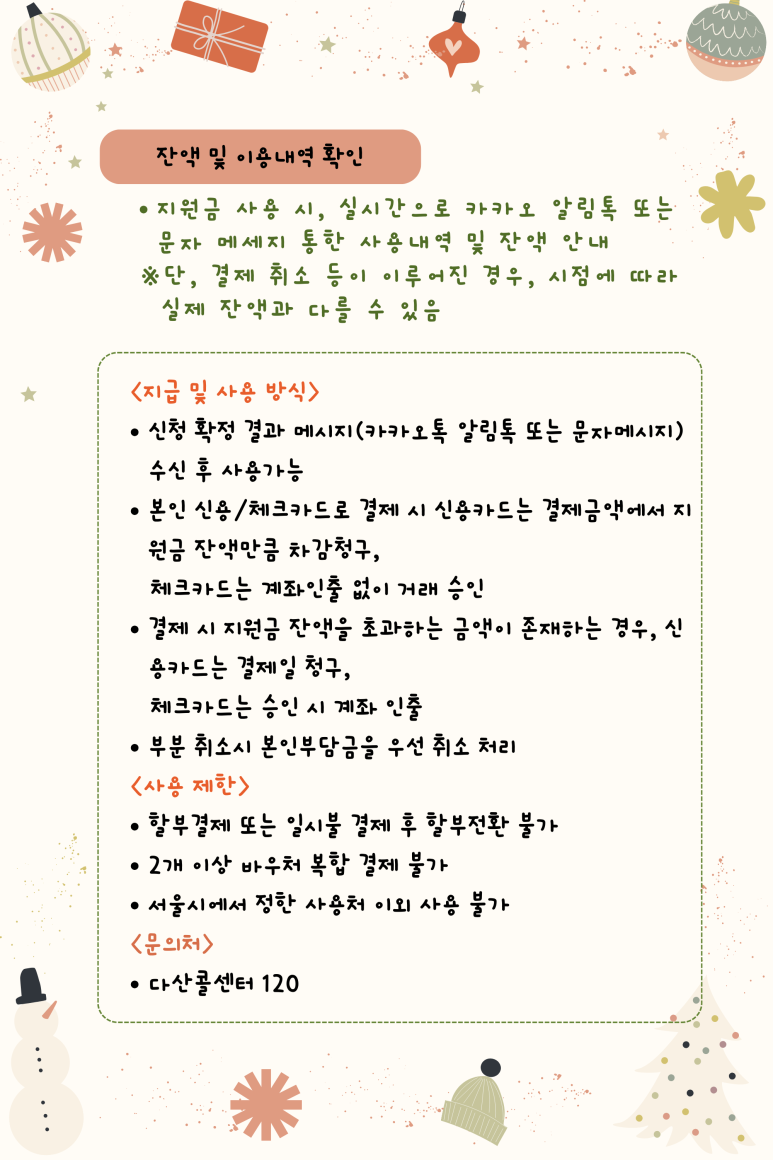 잔액 및 이용내역 확인
• 지원금 사용 시, 실시간으로 카카오 알림톡 또는
문자 메세지 통한 사용내역 및 잔액 안내
※단, 결제 취소 등이 이루어진 경우, 시점에 따라
실제 잔액과 다를 수 있음
<지급 및 사용 방식>
• 신청 확정 결과 메시지(카카오톡 알림톡 또는 문자메시지)
수신 후 사용가능
• 본인 신용/체크카드로 결제 시 신용카드는 결제금액에서 지
원금 잔액만큼 차감청구,
체크카드는 계좌인출 없이 거래 승인
• 결제 시 지원금 잔액을 초과하는 금액이 존재하는 경우, 신
용카드는 결제일 청구,
체크카드는 승인 시 계좌 인출
• 부분 취소시 본인부담금을 우선 취소 처리
<사용 제한>
• 할부결제 또는 일시불 결제 후 할부전환 불가
• 2개 이상 바우처 복합 결제 불가
• 서울시에서 정한 사용처 이외 사용 불가
<문의처>
• 다산콜센터 120